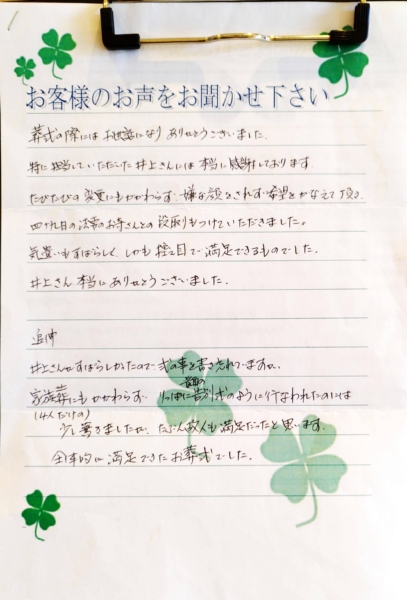 お客様のお声をお聞かせ下さい
葬式の際にはお世話になり ありがとうございました。
特に担当していただいた井上さんには本当に感謝しております
たびたびの変更にもかかわらず 嫌な顔をされず希望をかなえて頂き、
四十九日の法要のお寺さんとの段取りもつけていただきました。
気遣いもすばらしく、しかも控え目で満足できるものでした。
井上さん本当にありがとうございました。
追伸
井上さんがすばらしかったので式の事を書き忘れていますが、
家族葬にもかかわらず りっぱに普通の告別式のように行なわれたのには
(4人だけの)
少し驚きましたが、たぶん故人も満足だったと思います。
全体的に満足できたお葬式でした。